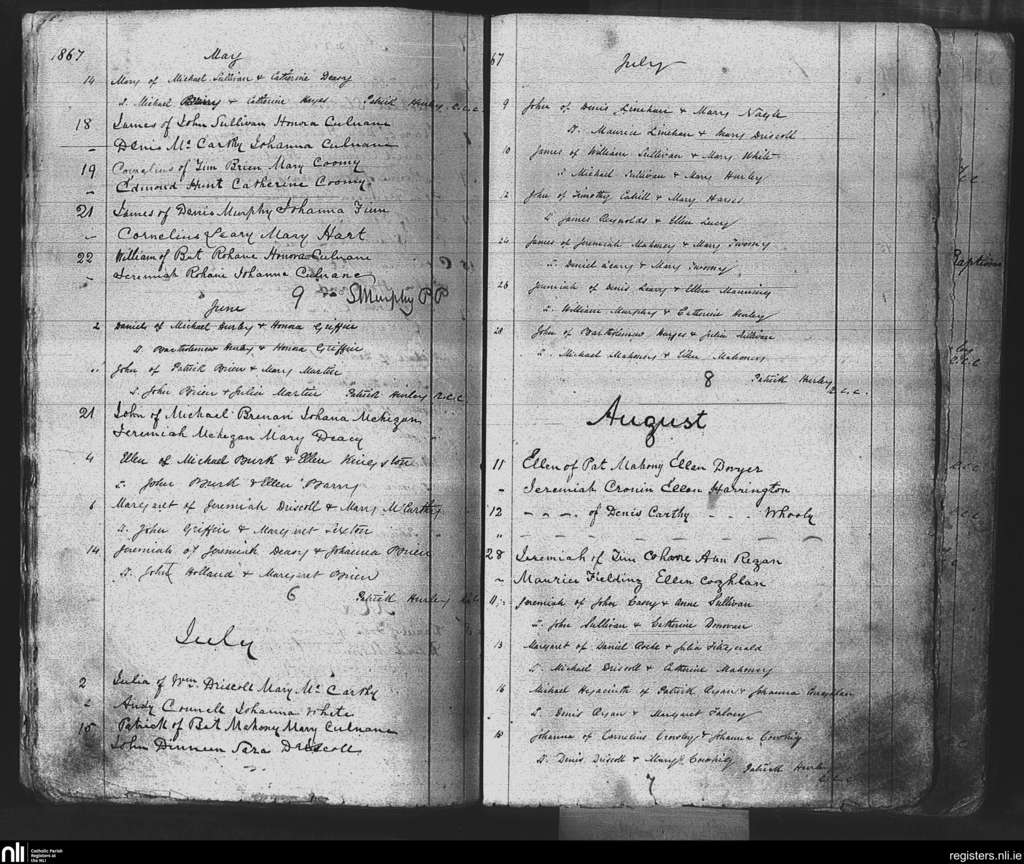 1867 May
14 Mary of Michael Sullivan & Catherine Deasy
S. Michael & Catherine Hayes Patrick Hurley R.C.C.
18 James of John Sullivan Honora Culnane
– Denis Mc Carthy Johanna Culnane
19 Cornelius of Tim Brien Mary Coomy
– Edmond Hunt Catherine Coomy
21 James of Denis Murphy Johanna Finn
– Cornelius Leary Mary Hart
22 William of Bat Rohane Honora Culnane
– Jeremiah Rohane Johanna Culnane
9 S Murphy P P
June
2 Daniel of Michael Hurley & Honora Griffin
S. Bartholomew Hurley & Honora Griffin
" John of Patrick Brien & Mary Martin
S. John Brien & Julia Martin Patrick Hurley R.C.C.
21 John of Michael Brenan Johana Mehigan
Jeremiah Mehegan Mary Deacy
4 Ellen of Michael Burk & Ellen Kingston
S. John Burk & Ellen Barry
6 Margaret of Jeremiah Driscoll & Mary McCarthy
S. John Griffin & Margaret Sexton
14 Jeremiah of Jeremiah Deasy & Johanna Brien
S. John Holland & Margaret Brien
6 Patrick Hurley
July
2 Julia of Wm Driscoll Mary Mc Carthy
Andy Connell Johanna White
15 Patrick of Bat Mahony Mary Culnane
John Dinneen Sara Driscoll
67 July
9 John of Denis Linehan & Mary Nagle
S. Maurice Linehan & Mary Driscoll
10 James of William Sullivan & Mary White
S. Michael Sullivan & Mary Hurley
12 John of Timothy Cahill & Mary Hayes
S. James Reynolds & Ellen Lucey
24 James of Jeremiah Mahony & Mary Twomy
S. Daniel Leary & Mary Twomy
26 Jeremiah of Denis Leary & Ellen Manning
S. William Murphy & Catherine Hurley
28 John of Bartholomew Hayes & Julia Sullivan
S. Michael Mahony & Ellen Mahony
8 Patrick Hurley R.C.C.
August
11 Ellen of Pat Mahony Ellen Dwyer
– Jeremiah Cronin Ellen Harrington
12 – – – of Denis Carthy – – – Whooly
" – – – – – – – –
28 Jeremiah of Tim Cohane Ann Regan
– Maurice Fielding Ellen Coghlan
11 Jeremiah of John Casey & Anne Sullivan
S. John Sullivan & Catherine Donovan
13 Margaret of Daniel & Julia Fitzgerald
S. Michael Driscoll & Catherine Mahony
16 Michael Hyacinth of Patrick Ryan & Johanna Coughlan
S. Denis Ryan & Margaret Falvey
18 Johanna of Cornelius Crowley & Johanna Cowhig
S. Denis Driscoll & Mary Cowhig
7 Patrick Hurley R.C.C.
Baptism
nli Catholic Parish
Registers at
the NLI
registers.nli.ie